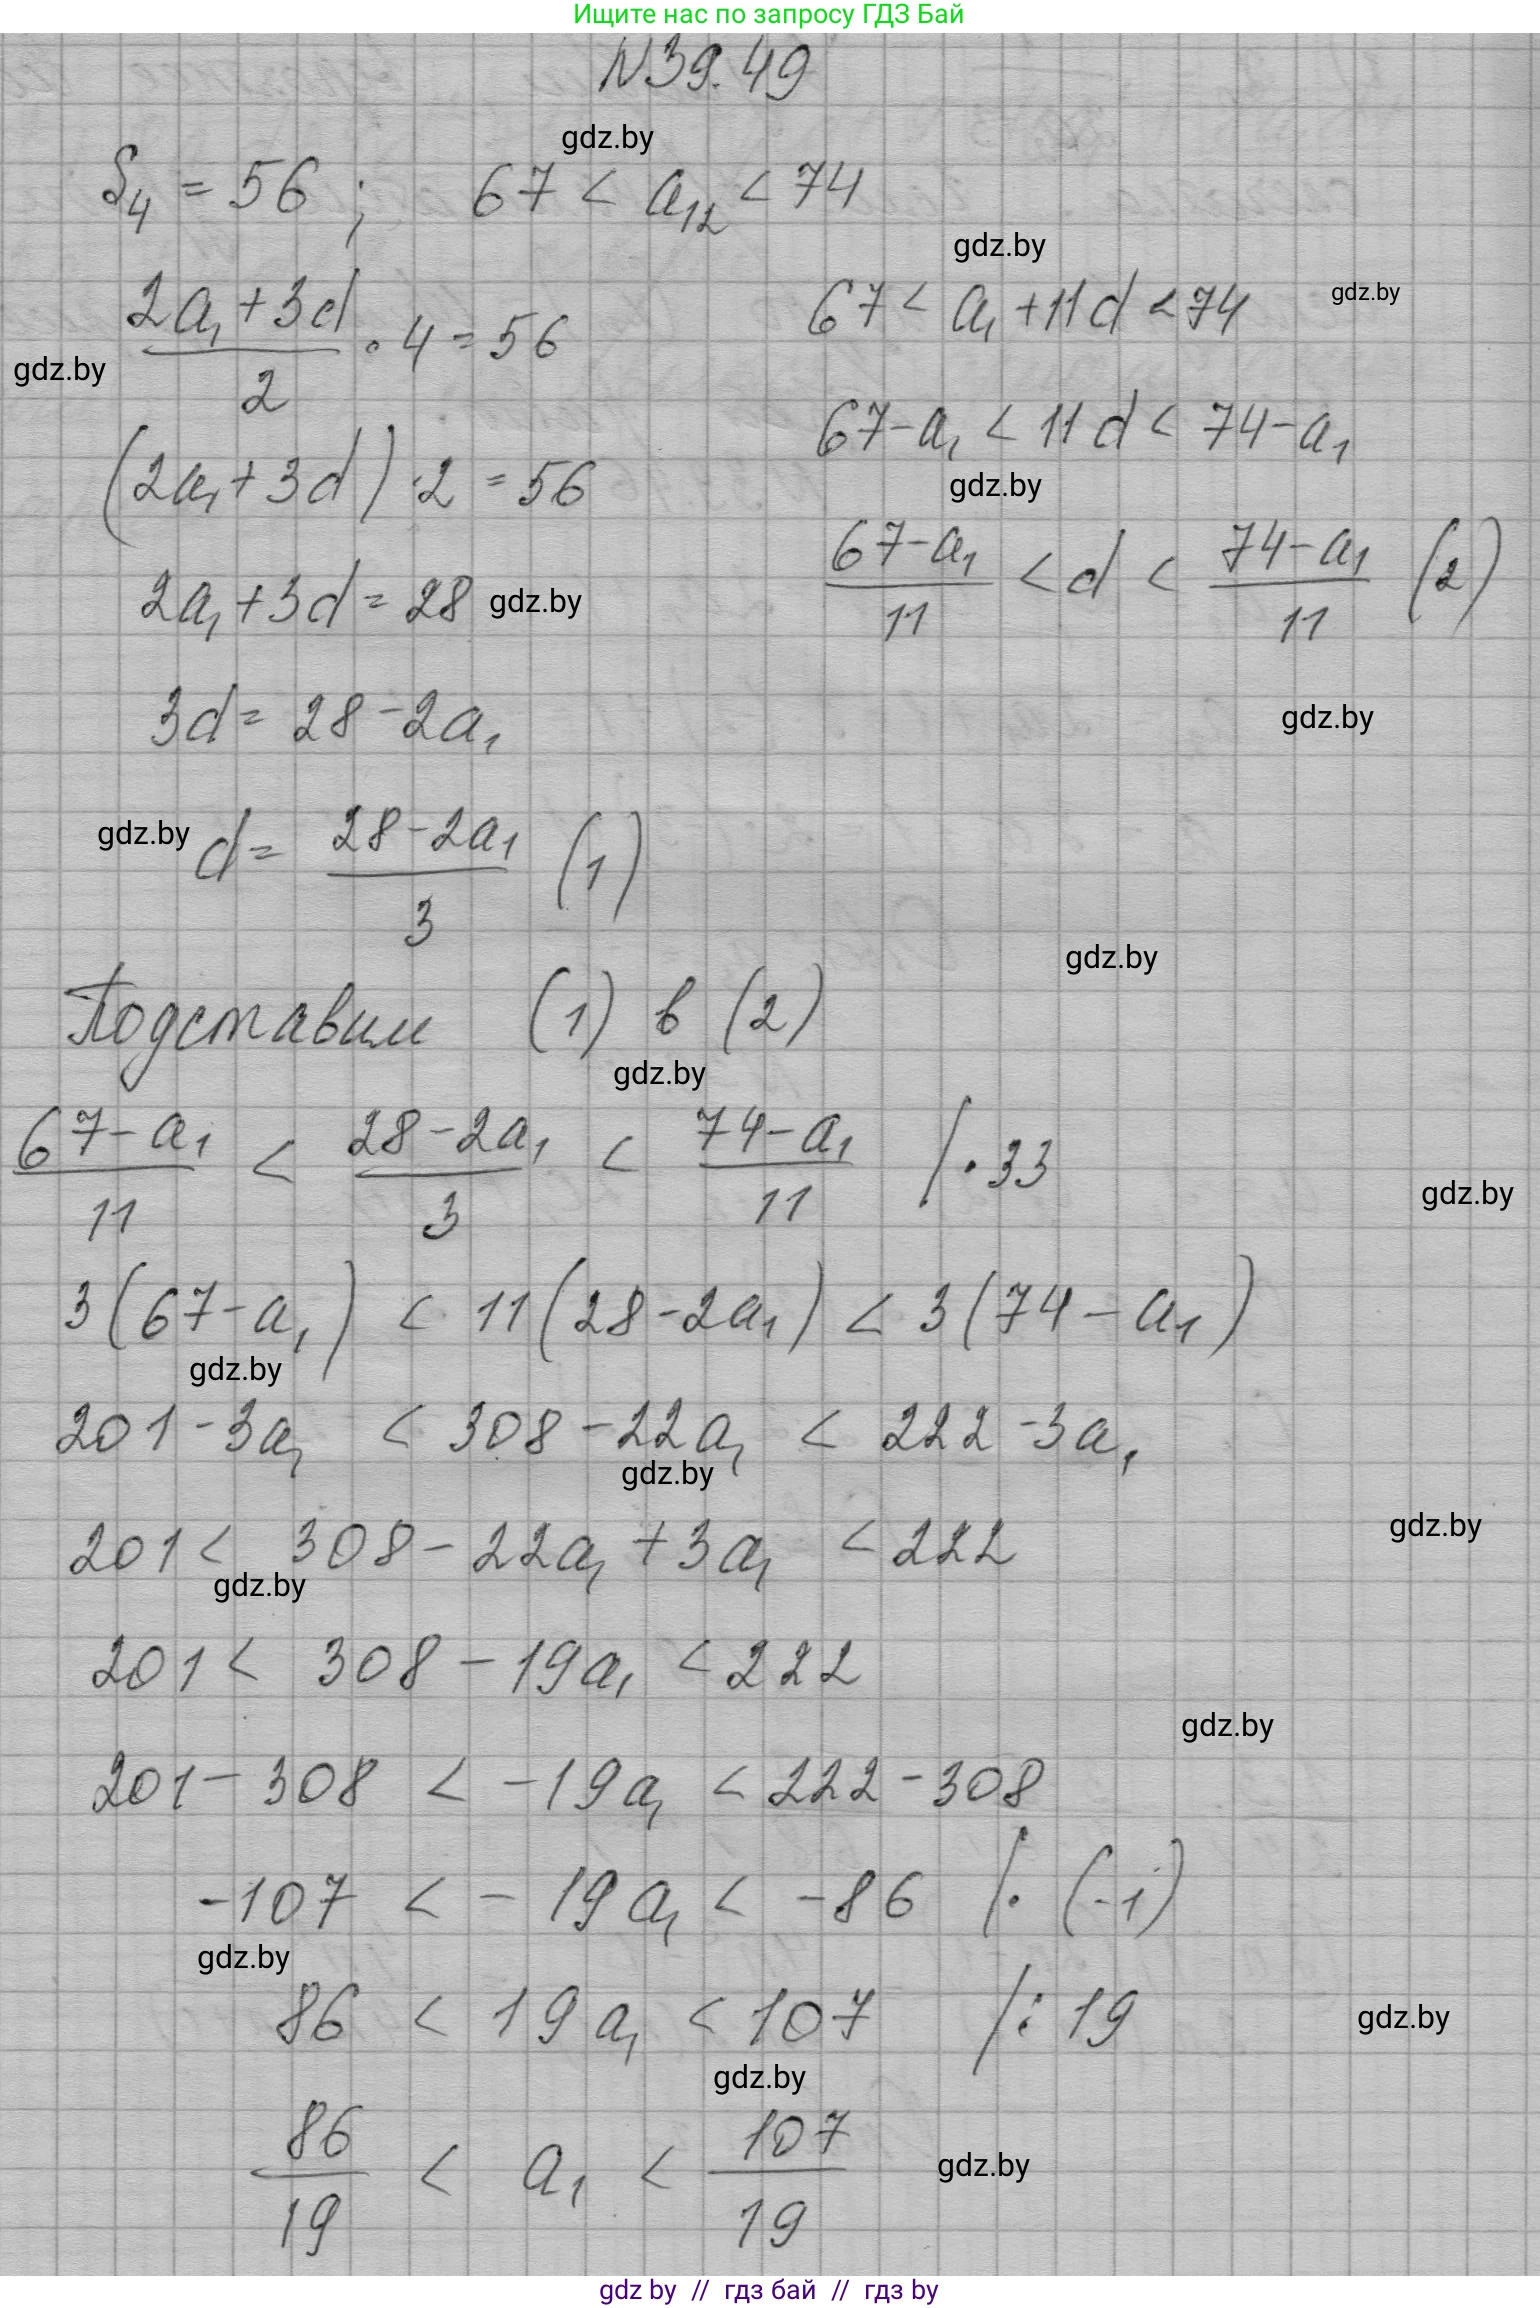 Ищите нас по запросу ГДЗ Бай
N39.49
gdz.by
S₄ = 56 ; 67 < a₁₂ < 74
gdz.by
(2a₁+3d)/2 · 4 = 56
67 < a₁+11d < 74
gdz.by
gdz.by
67-a₁ < 11d < 74-a₁
(2a₁+3d)·2 = 56
gdz.by
(67-a₁)/11 < d < (74-a₁)/11 (2)
2a₁+3d = 28
gdz.by
3d = 28-2a₁
gdz.by
gdz.by
d = (28-2a₁)/3 (1)
gdz.by
Подставим (1) в (2)
gdz.by
(67-a₁)/11 < (28-2a₁)/3 < (74-a₁)/11 /·33
gdz.by
3(67-a₁) < 11(28-2a₁) < 3(74-a₁)
gdz.by
201-3a₁ < 308-22a₁ < 222-3a₁
gdz.by
gdz.by
201 < 308-22a₁+3a₁ < 222
gdz.by
201 < 308-19a₁ < 222
gdz.by
201-308 < -19a₁ < 222-308
-107 < -19a₁ < -86 /·(-1)
gdz.by
86 < 19a₁ < 107 /:19
gdz.by
gdz.by
86/19 < a₁ < 107/19
gdz.by
gdz by // гдз бай // гдз by